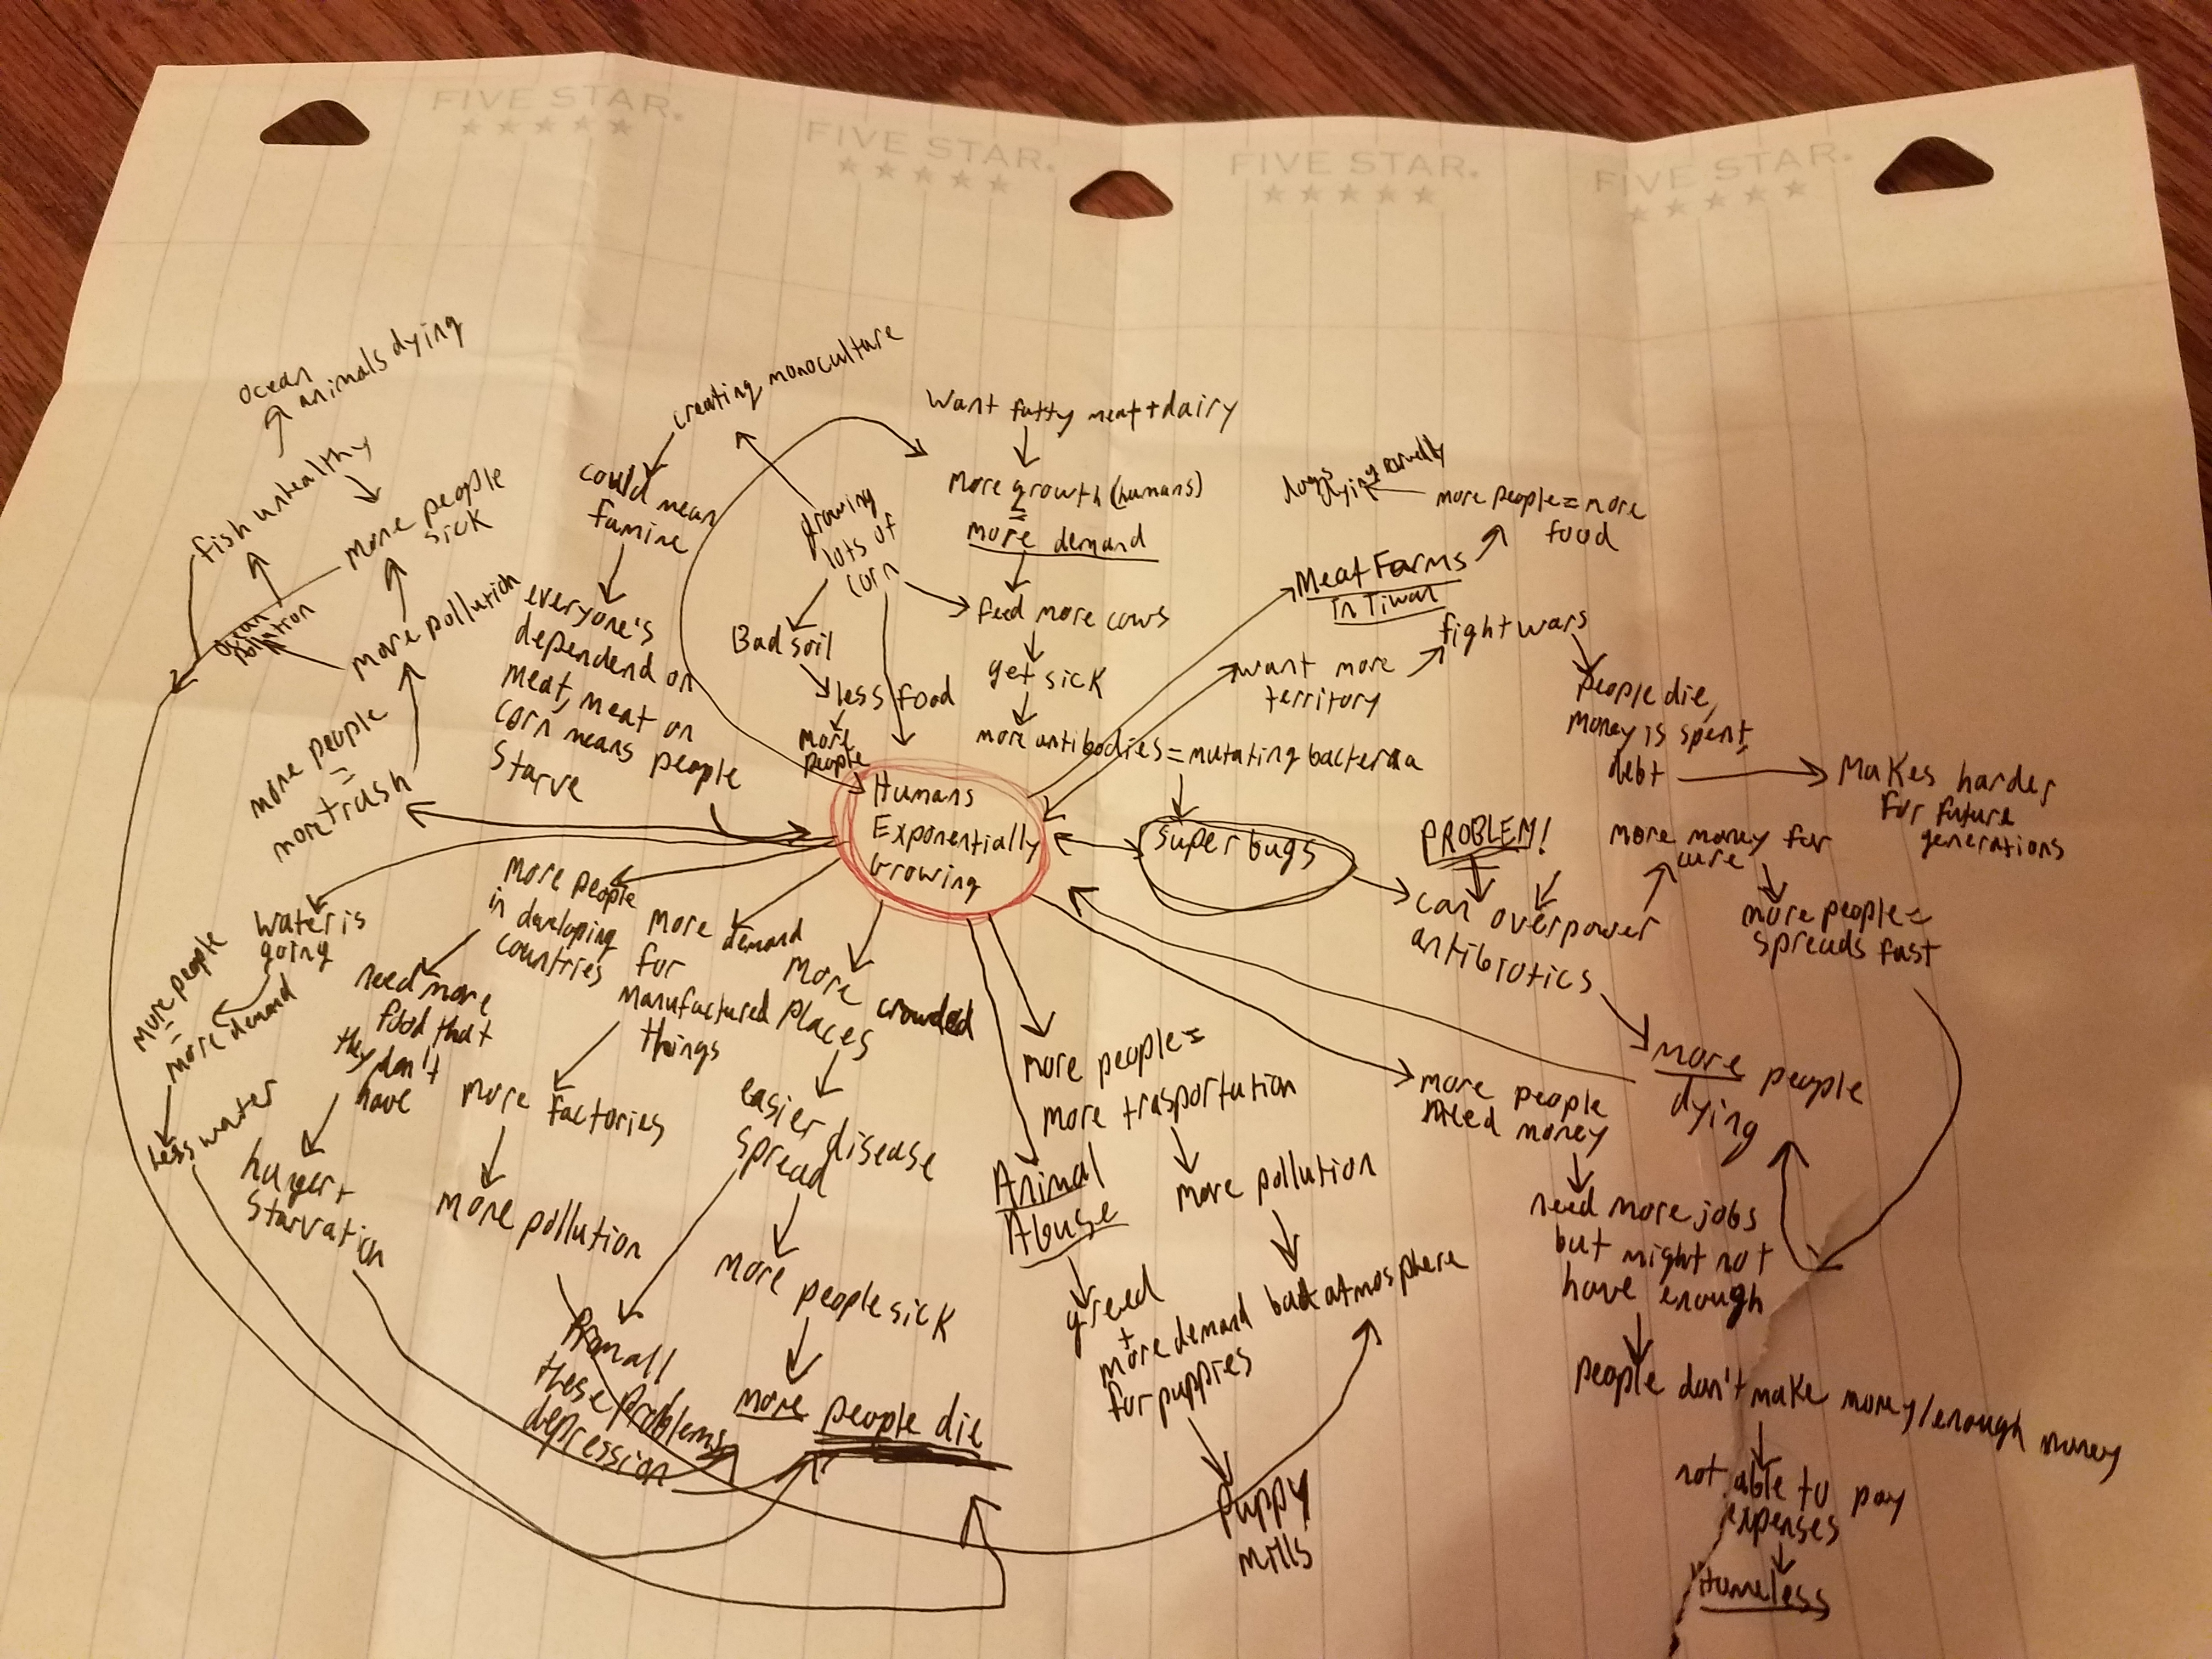 FIVE STAR.
FIVE STAR.
FIVE STAR.
FIVE STAR.
ocean
animals dying
fish unhealthy
more people
sick
ocean
pollution
more pollution
more people
=
more trash
creating monoculture
could mean
famine
everyone's
dependend on
meat, meat on
corn means people
starve
growing
lots of
corn
Bad soil
less food
more
people
want fatty meat + dairy
more growth (humans)
=
more demand
feed more cows
get sick
more antibodies = mutating bacteria
super bugs
Humans
Exponentially
Growing
dying
more people = more
food
Meat Farms
in Tiwan
want more
territory
fight wars
people die,
money is spent,
debt
Makes harder
for future
generations
PROBLEM!
can overpower
antibiotics
more money for
cure
more people =
spreads fast
more people
dying
more people
need money
need more jobs
but might not
have enough
people don't make money/enough money
not able to pay
expenses
Homeless
water is
going
more people
=
more demand
less water
more people
in developing
countries
need more
food that
they don't
have
hunger +
starvation
more demand
for
manufactured
things
more factories
more pollution
more crowded
places
easier disease
spread
more people sick
more people die
From all
these problems
depression
more people =
more trasportation
more pollution
bad atmosphere
Animal
Abuse
greed
+
more demand
for puppies
puppy
mills